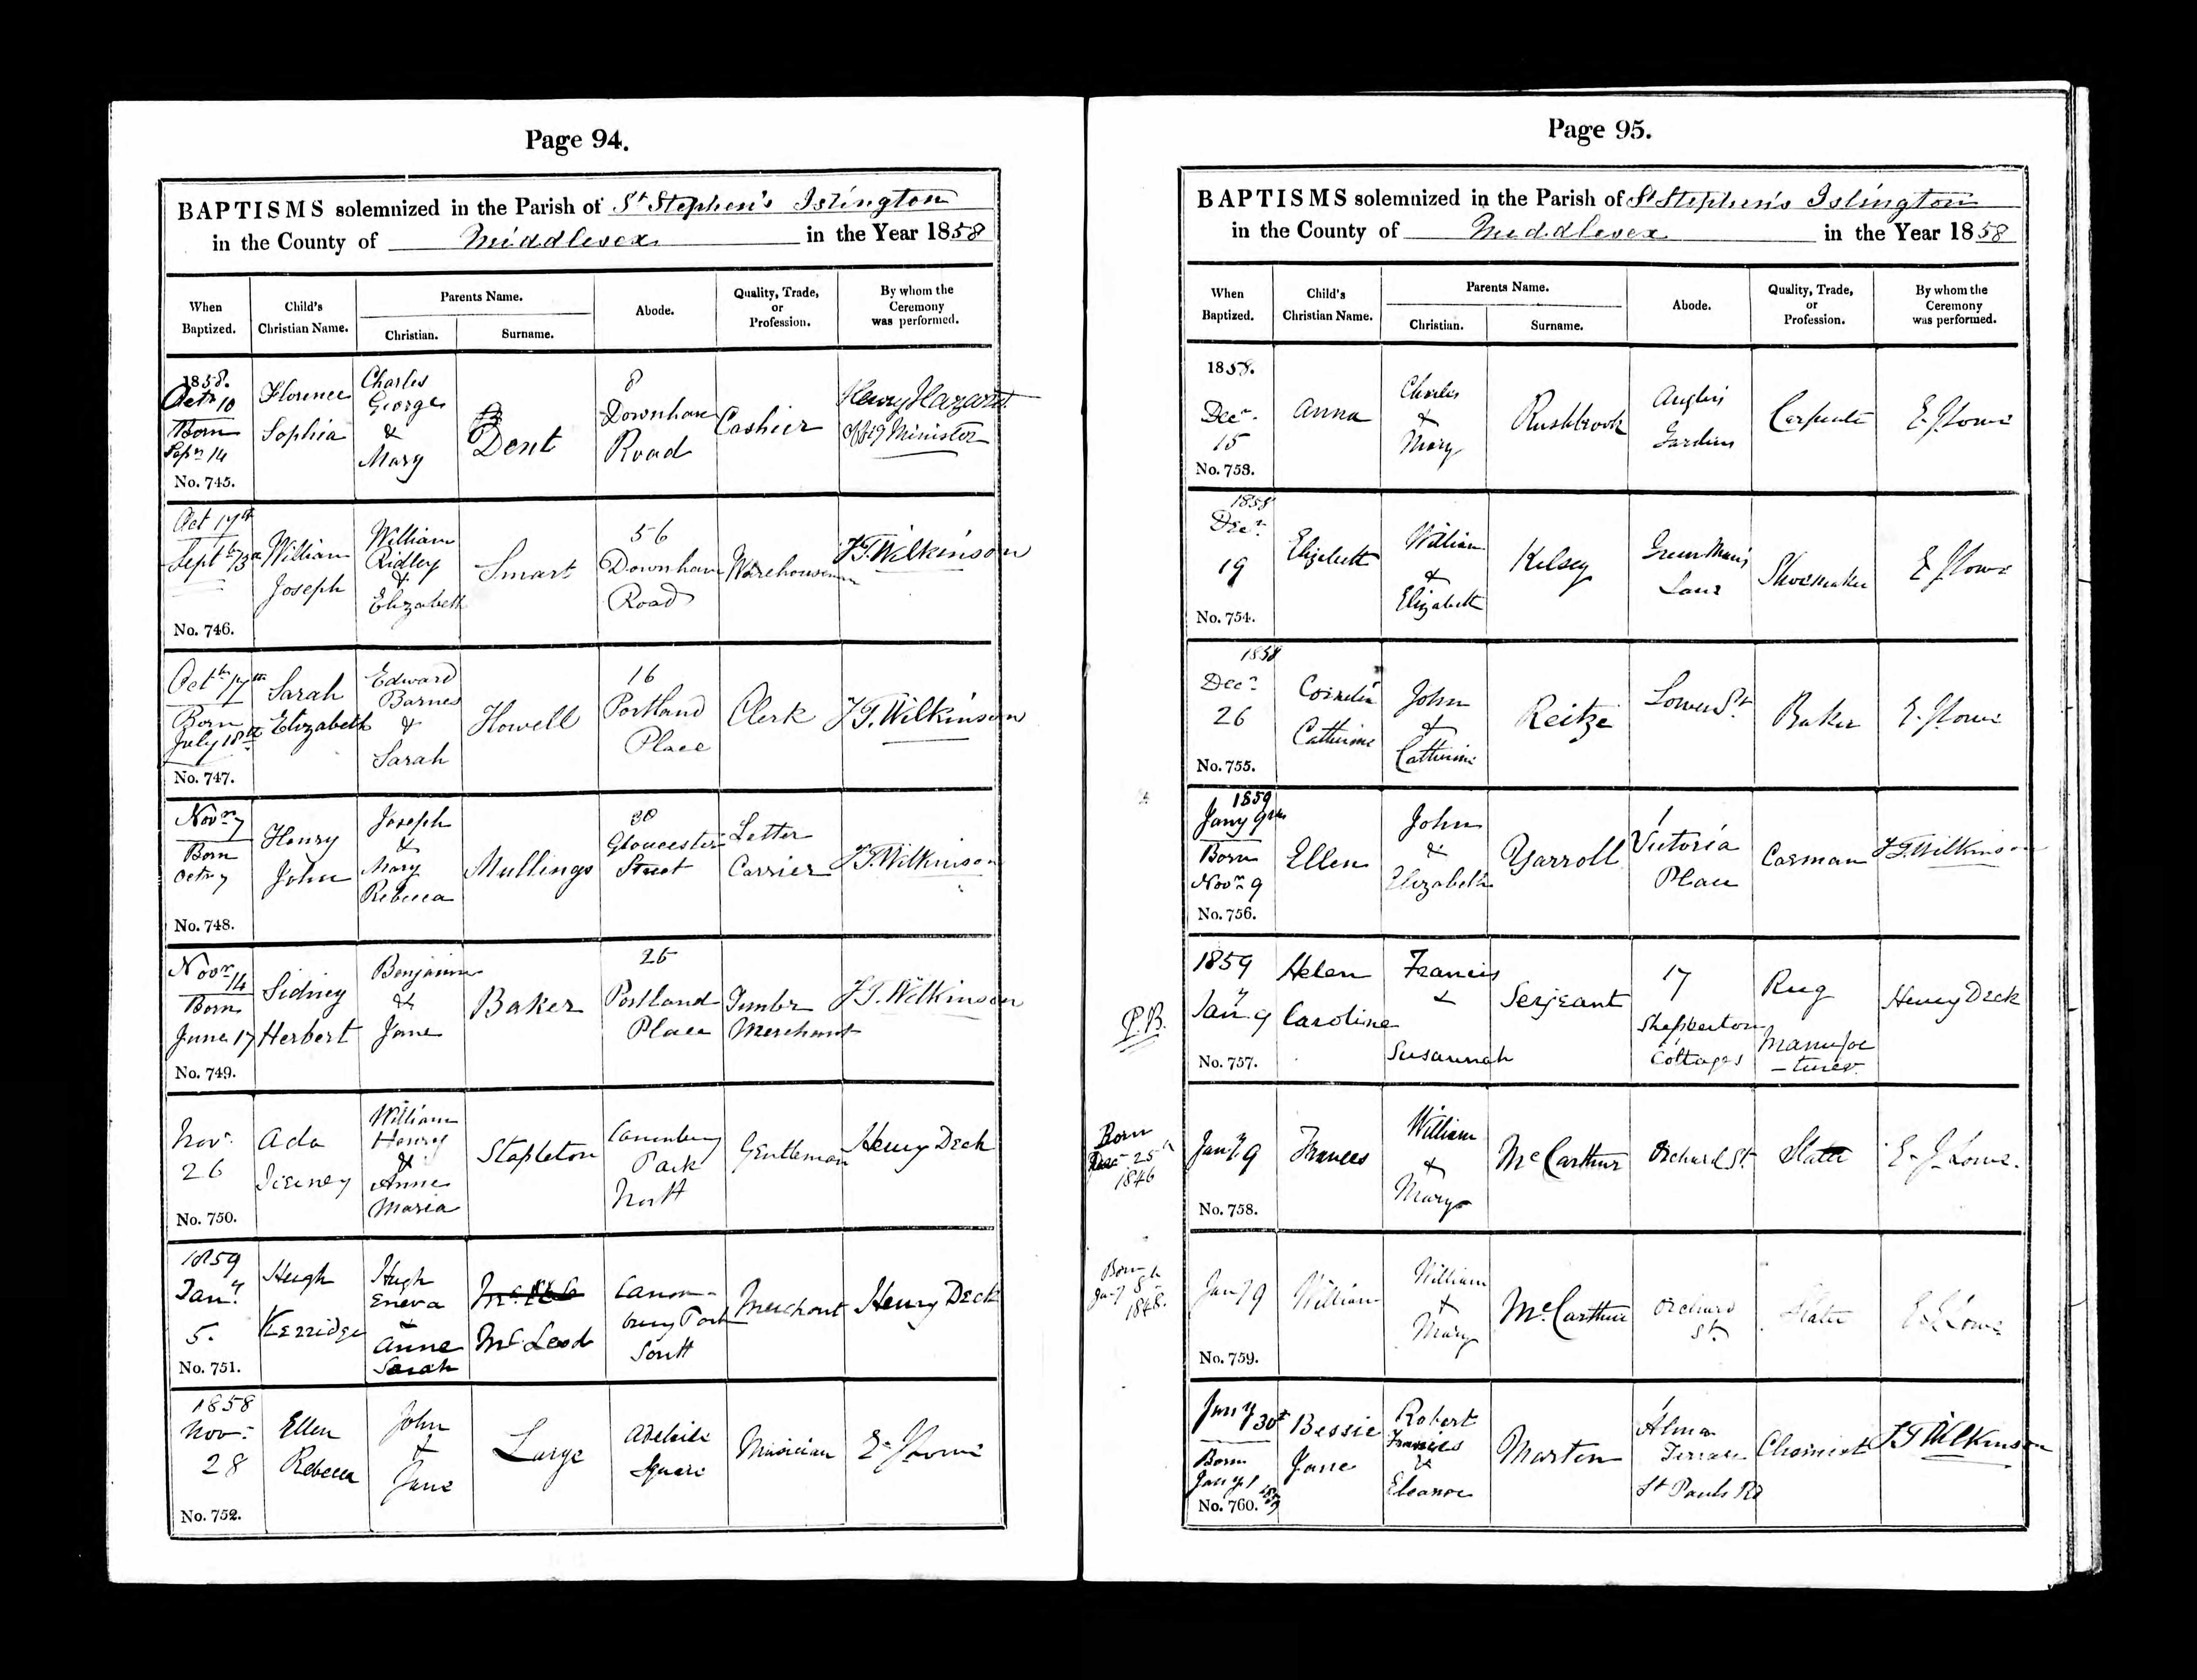 Page 94.
BAPTISMS solemnized in the Parish of St Stephen's Islington
in the County of Middlesex in the Year 1858
When Baptized.
Child's Christian Name.
Parents Name.
Christian.
Surname.
Abode.
Quality, Trade, or Profession.
By whom the Ceremony was performed.
1858.
Octr 10
Born
Sepr 14
No. 745.
Florence
Sophia
Charles
George
&
Mary
Dent
8
Downham
Road
Cashier
Henry Hazard
Offg Minister
Oct 17th
Sept
No. 746.
William
Joseph
William
Ridley
&
Elizabeth
Smart
56
Downham
Road
Warehouseman
J T. Wilkinson
Octbr 17th
Born
July 18th
No. 747.
Sarah
Elizabeth
Edward
Barnes
&
Sarah
Howell
16
Portland
Place
Clerk
J T. Wilkinson
Novr 7
Born
Octr 7
No. 748.
Henry
John
Joseph
&
Mary
Rebecca
Mullings
30
Gloucester
Street
Letter
Carrier
J T. Wilkinson
Novr 14
Born
June 17
No. 749.
Sidney
Herbert
Benjamin
&
Jane
Baker
25
Portland
Place
Timber
Merchant
J T. Wilkinson
Novr
26
No. 750.
Ada
William
Henry
&
Anne
Maria
Stapleton
Canonbury
Park
North
Gentleman
Henry Deck
1859
Jany
5.
No. 751.
Hugh
Kerridge
Hugh
Eneva
&
Anne
Sarah
McLeod
Canon-
bury Park
South
Merchant
Henry Deck
1858
Nov:
28
No. 752.
Ellen
Rebecca
John
&
Jane
Large
Adelaide
Square
Musician
E. J. Lowe
Page 95.
BAPTISMS solemnized in the Parish of St Stephen's Islington
in the County of Middlesex in the Year 1858
When Baptized.
Child's Christian Name.
Parents Name.
Christian.
Surname.
Abode.
Quality, Trade, or Profession.
By whom the Ceremony was performed.
1858.
Decr.
15
No. 753.
Anna
Charles
&
Mary
Rushbrook
Anglers
Gardens
Carpenter
E. J. Lowe
1858
Decr
19
No. 754.
Elizabeth
William
&
Elizabeth
Kelsey
Green Man's
Lane
Shoemaker
E. J. Lowe
1858
Decr
26
No. 755.
Cornelia
Catherine
John
&
Catherine
Reitze
Lower St
Baker
E. J. Lowe
1859
Jany 9th
Born
Novr 9
No. 756.
Ellen
John
&
Elizabeth
Yarroll
1
Victoria
Place
Carman
J T. Wilkinson
P.B.
1859
Jany 9
No. 757.
Helen
Caroline
Francis
&
Susannah
Serjeant
17
Shepperton
Cottages
Rug
Manufac
-turer
Henry Deck
Born
Decr 25th
1846
Jany 9
No. 758.
Frances
William
&
Mary
McCarthur
Orchard St.
Slater
E. J. Lowe.
Born
Jany 8th
1848.
Jany 9
No. 759.
William
William
&
Mary
McCarthur
Orchard
St.
Slater
E. J. Lowe
Jany 30th
Born
Jany 1
1859
No. 760.
Bessie
Jane
Robert
Francis
&
Eleanor
Marten
1
Alma
Terrace
St Pauls Rd
Chemist
J T Wilkinson